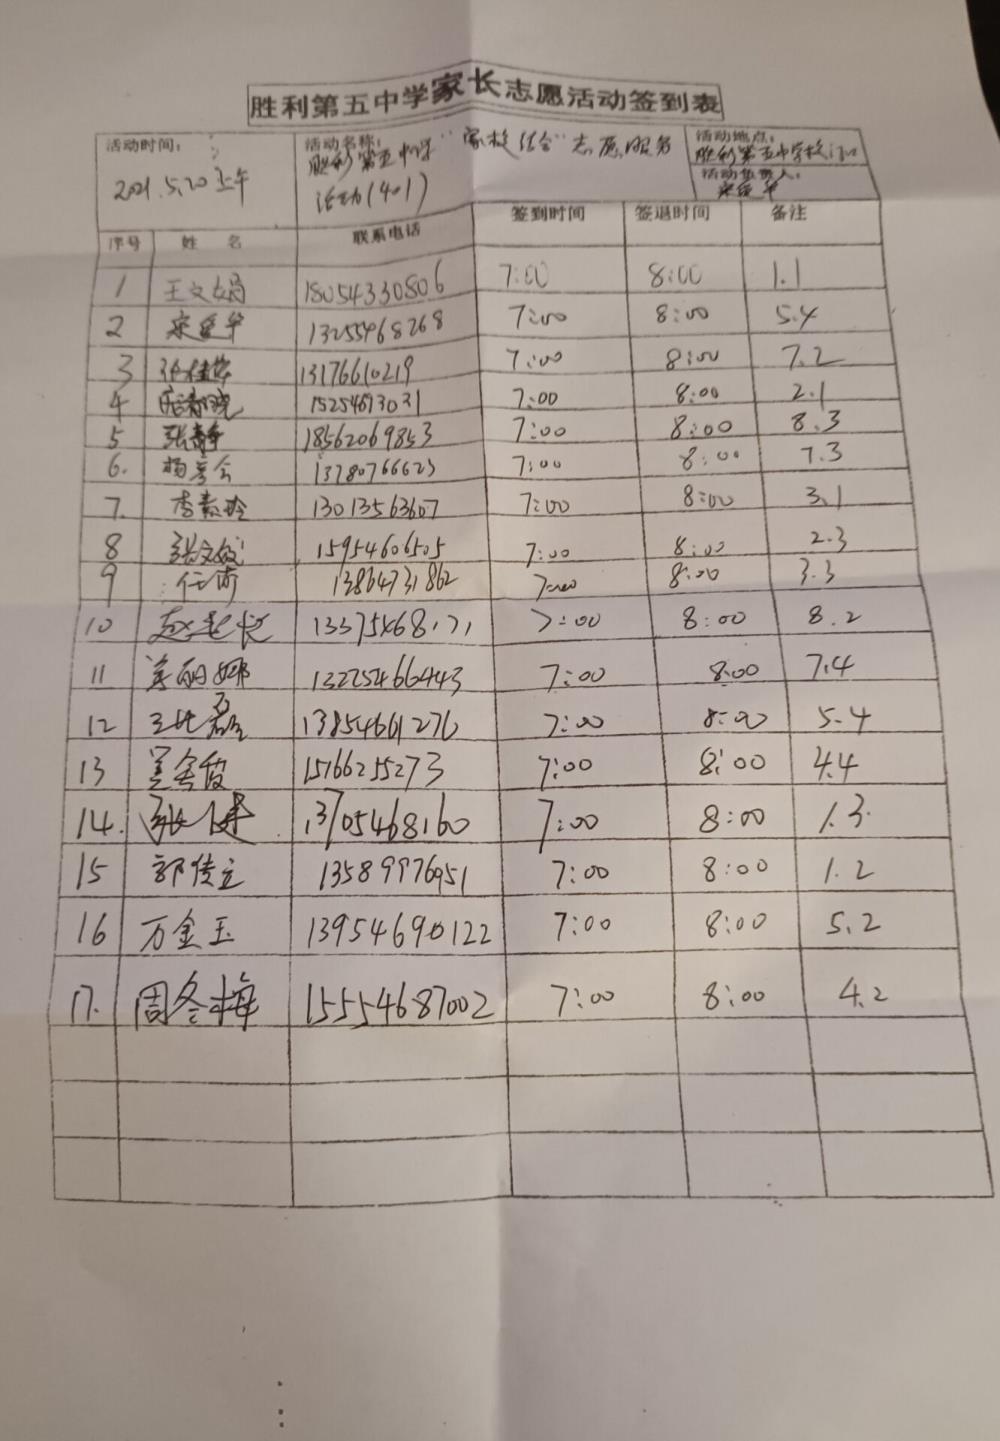 胜利第五中学家长志愿活动签到表
活动时间：
2021.5.20上午
活动名称：
胜利第五中学"家校结合"志愿服务
活动(401)
活动地点：
胜利第五中学校门口
活动负责人：
序号 姓 名 联系电话 签到时间 签退时间 备注
1 王文娟 18054330806 7:00 8:00 1.1
2 13255468268 7:00 8:00 5.4
3 13176610219 7:00 8:00 7.2
4 15254673031 7:00 8:00 2.1
5 张静 18562069853 7:00 8:00 8.3
6. 杨冬会 13780766623 7:00 8:00 7.3
7. 李素玲 13013563607 7:00 8:00 3.1
8 张文妮 15954606505 7:00 8:00 2.3
9 13864731862 7:00 8:00 3.3
10 7:00 8:00 8.2
11 姜丽娜 13225466443 7:00 8:00 7.4
12 13854661276 7:00 8:00 5.4
13 15766255273 7:00 8:00 4.4
14. 张健 13705468160 7:00 8:00 1.3.
15 郭传立 13589976951 7:00 8:00 1.2
16 万金玉 13954690122 7:00 8:00 5.2
17. 周冬梅 15554687002 7:00 8:00 4.2